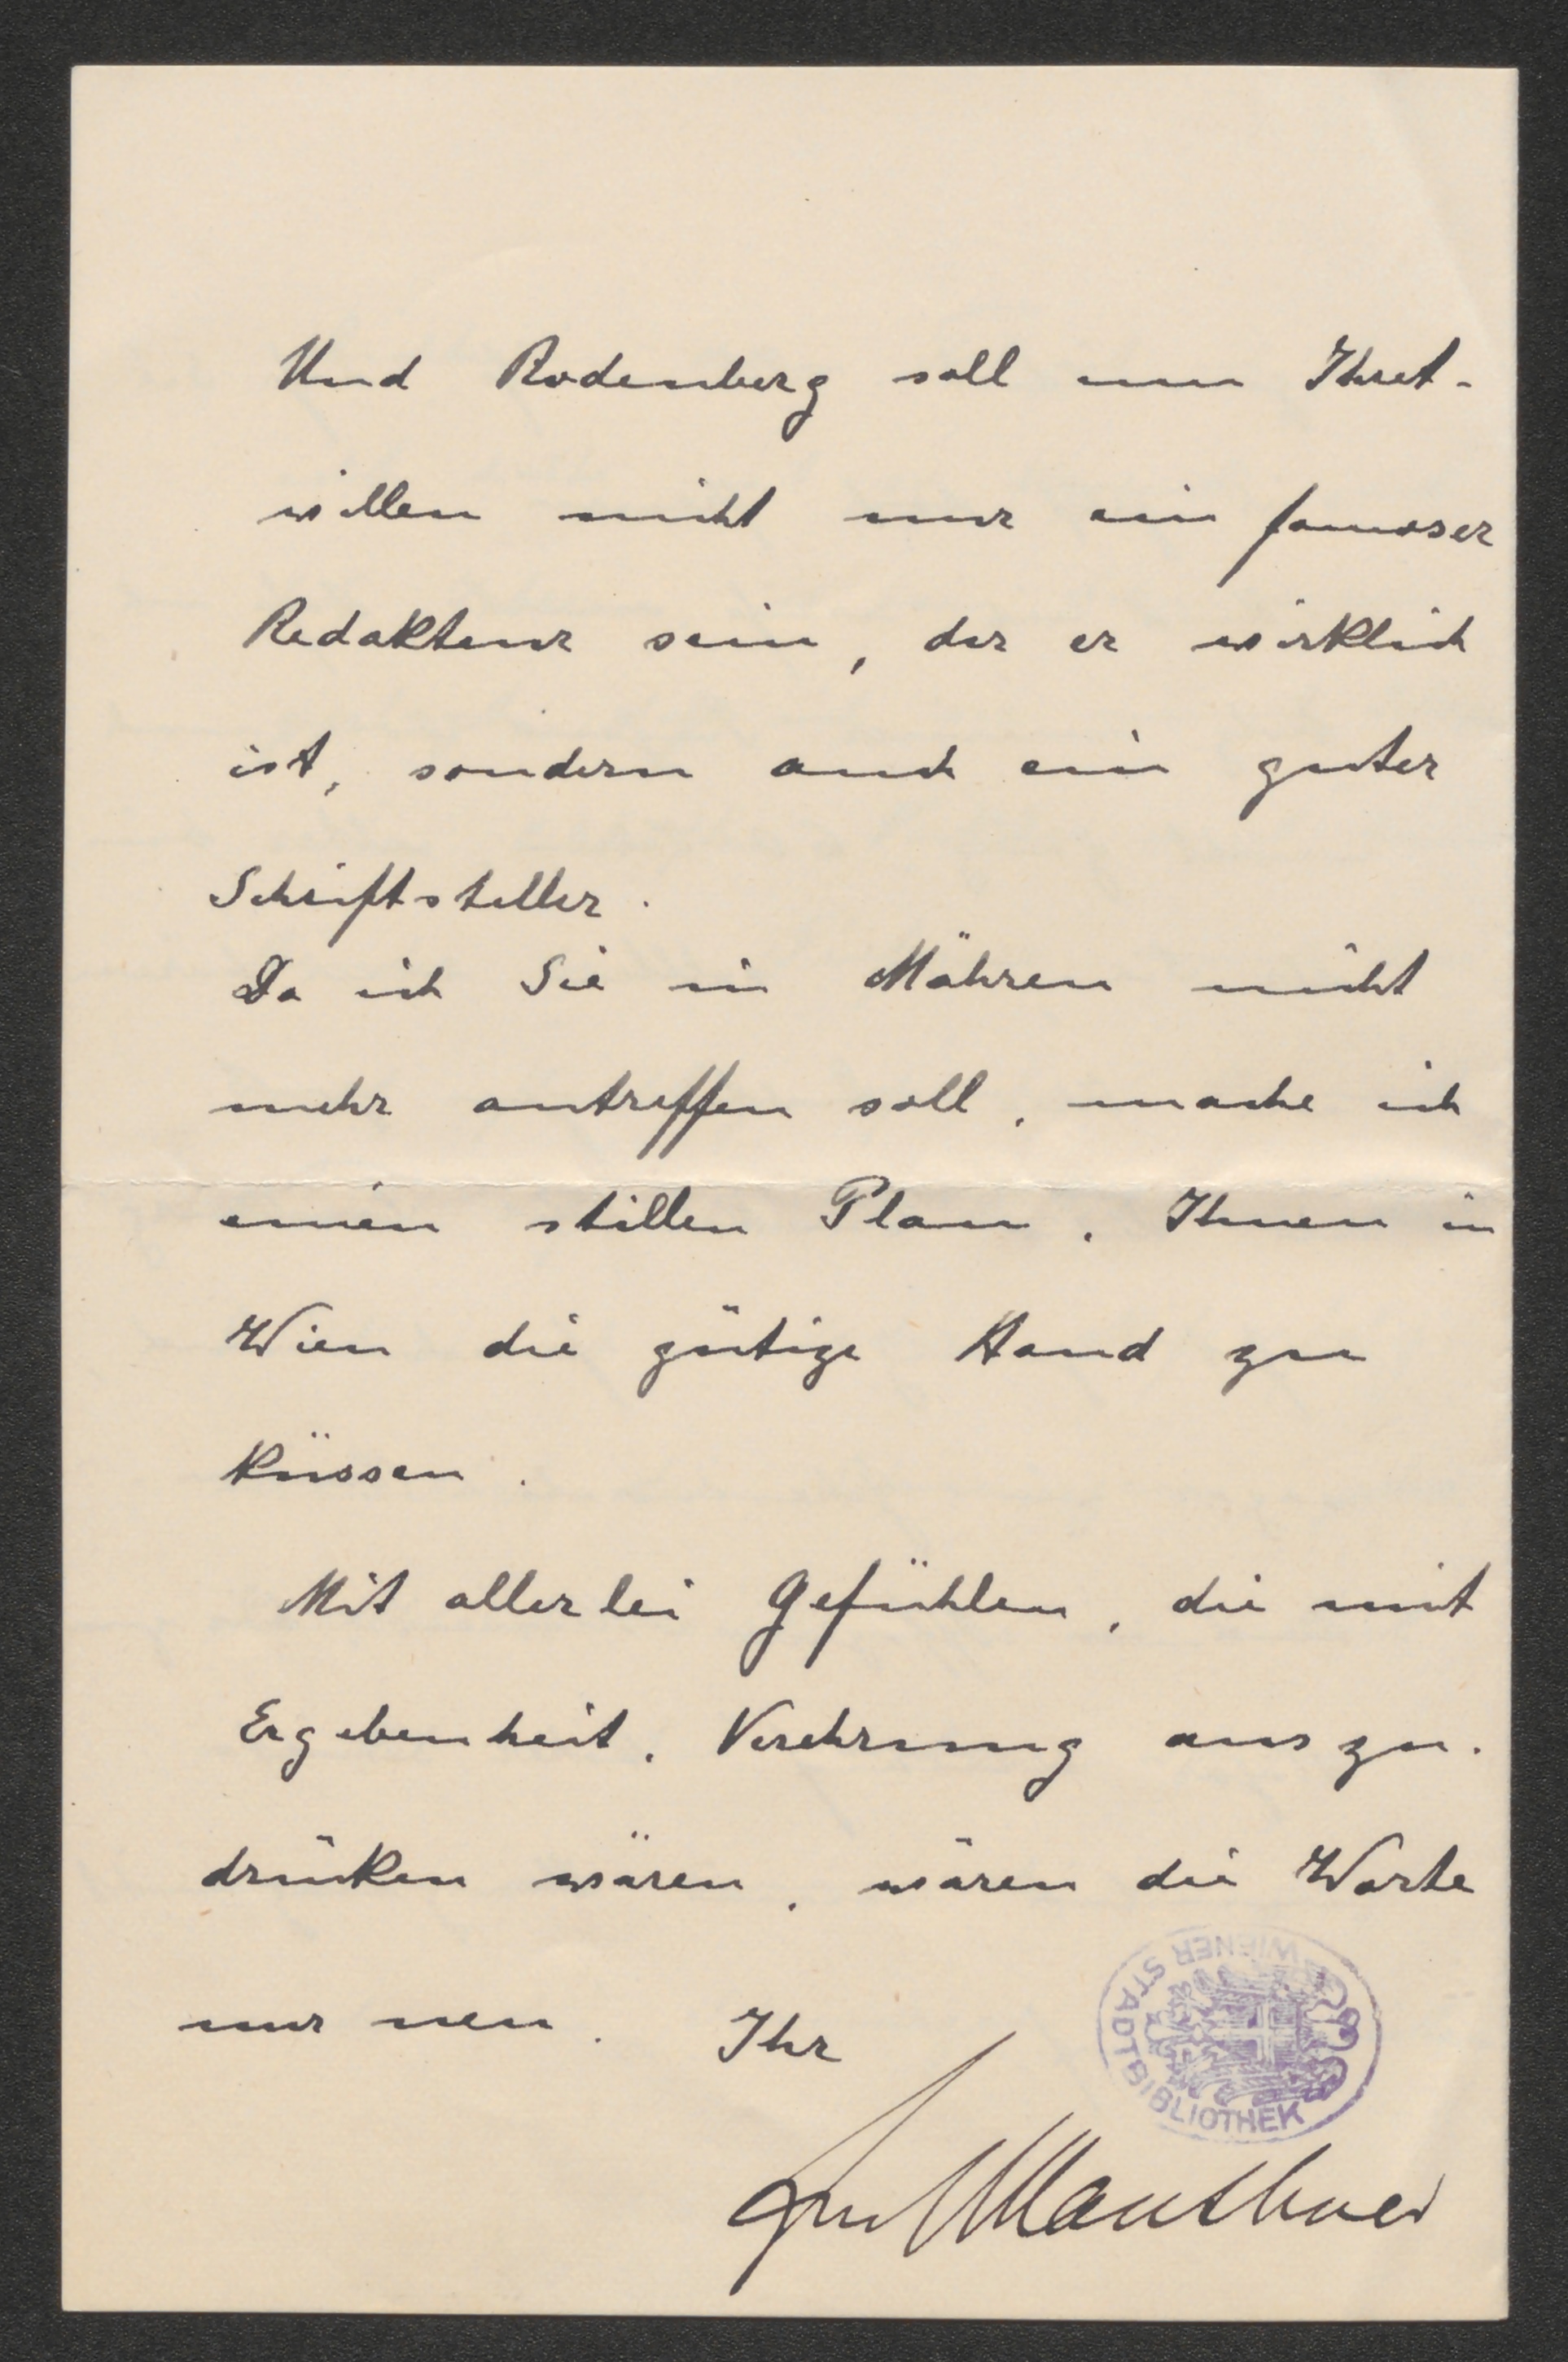 Und Rodenberg soll um Ihret-
willen nicht nur ein famoser
Redakteur sein, der er wirklich
ist, sondern auch ein guter
Schriftsteller.
Da ich Sie in Mähren nicht
mehr antreffen soll, mache ich
einen stillen Plan, Ihnen in
Wien die gütige Hand zu
küssen.
Mit allerlei Gefühlen, die mit
Ergebenheit, Verehrung auszu-
drücken wären, wären die Worte
nur neu. Ihr
WIENER STADTBIBLIOTHEK
Mauthner